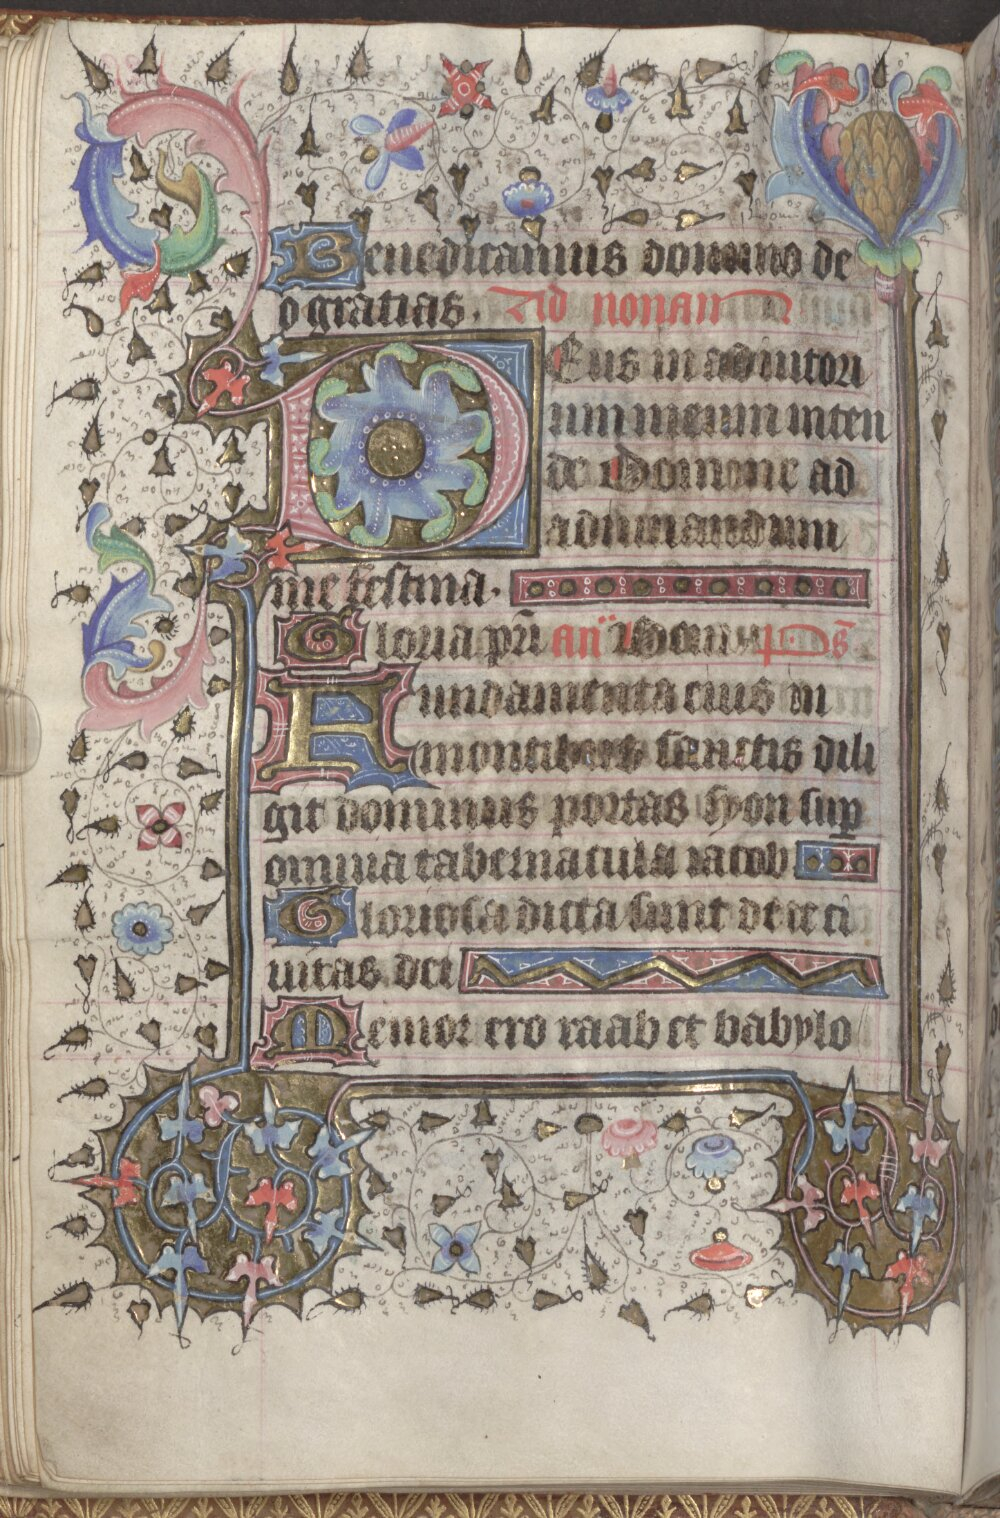 Benedicamus domino de
o gratias. Ad nonam
Deus in adiutori
um meum inten
de Domine ad
adiuuandum
me festina.
Gloria pr̃i an̄ Germ ps̃
Fundamenta eius in
montibus sanctis dili
git dominus portas syon sup̱
omnia tabernacula iacob
Gloriosa dicta sunt de te ci
uitas dei
Memor ero raab et babylo